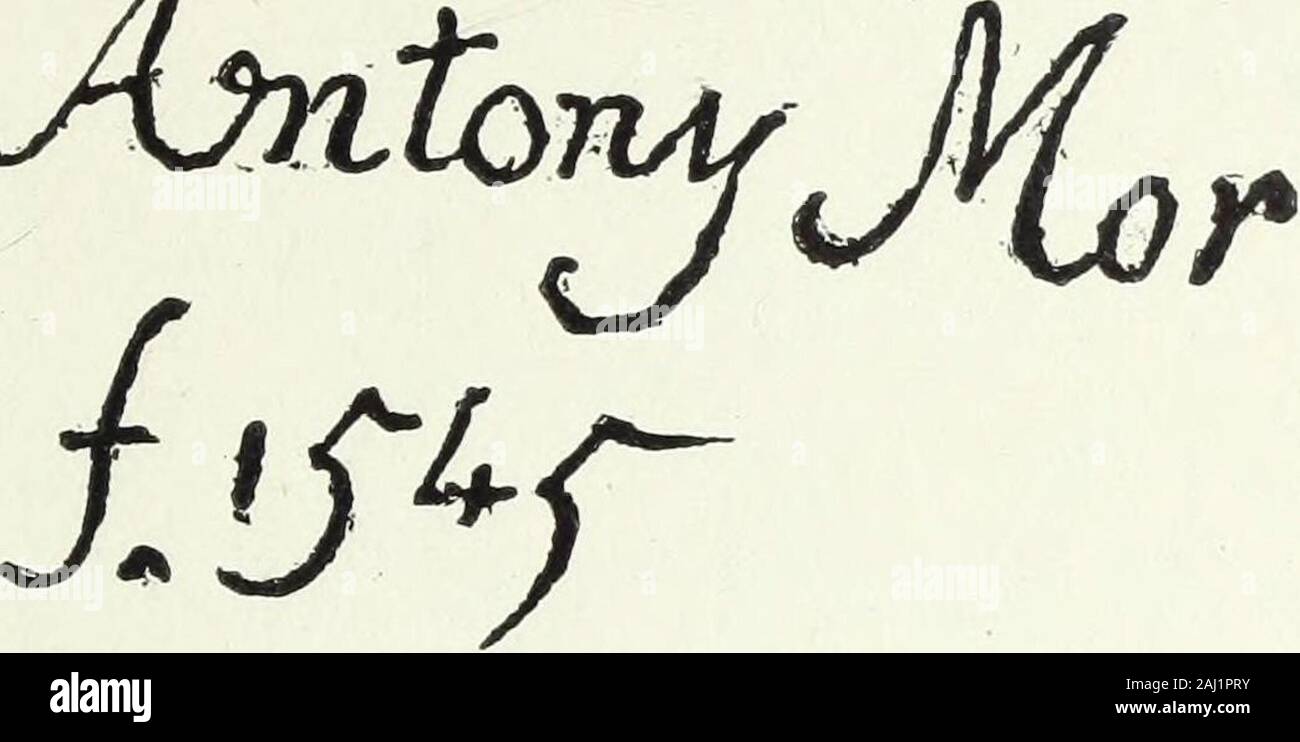 Antony Mor
f. 1545
alamy
Image ID: 2AJ1PRY
www.alamy.com